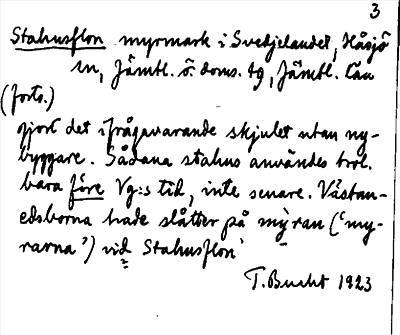 3
Stahusflon myrmark i Svedjelandet, Håsjö
sn, Jämtl. ö. doms. tg, Jämtl. län
(forts.)
gjort det ifrågavarande skjulet utan ny-
byggare. Sådana stahus användes trol.
bara före Vg:s tid, inte senare. Västan-
edsborna hade slåtter på my̍ran ('my-
rarna') vid Stahusflon
T. Bucht 1923